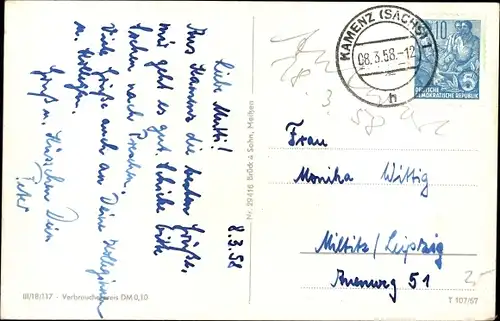 8.3.58
Liebe Mutti!
Aus Kamenz die besten Grüße.
mir geht es gut. Schicke bitte
Socken nach Dresden.
Viele Grüße auch an Deine Kolleginnen
u. Kollegen.
Gruß u. Küsschen Dein
Peter
III/18/117 - Verbraucherpreis DM 0,10
Nr. 29416 Brück & Sohn, Meißen
KAMENZ (SACHS) 1
08.3.58.-12
h
10
5
DEUTSCHE
DEMOKRATISCHE REPUBLIK
Frau
Monika Wittig
Miltitz/Leipzig
51
T 107/57